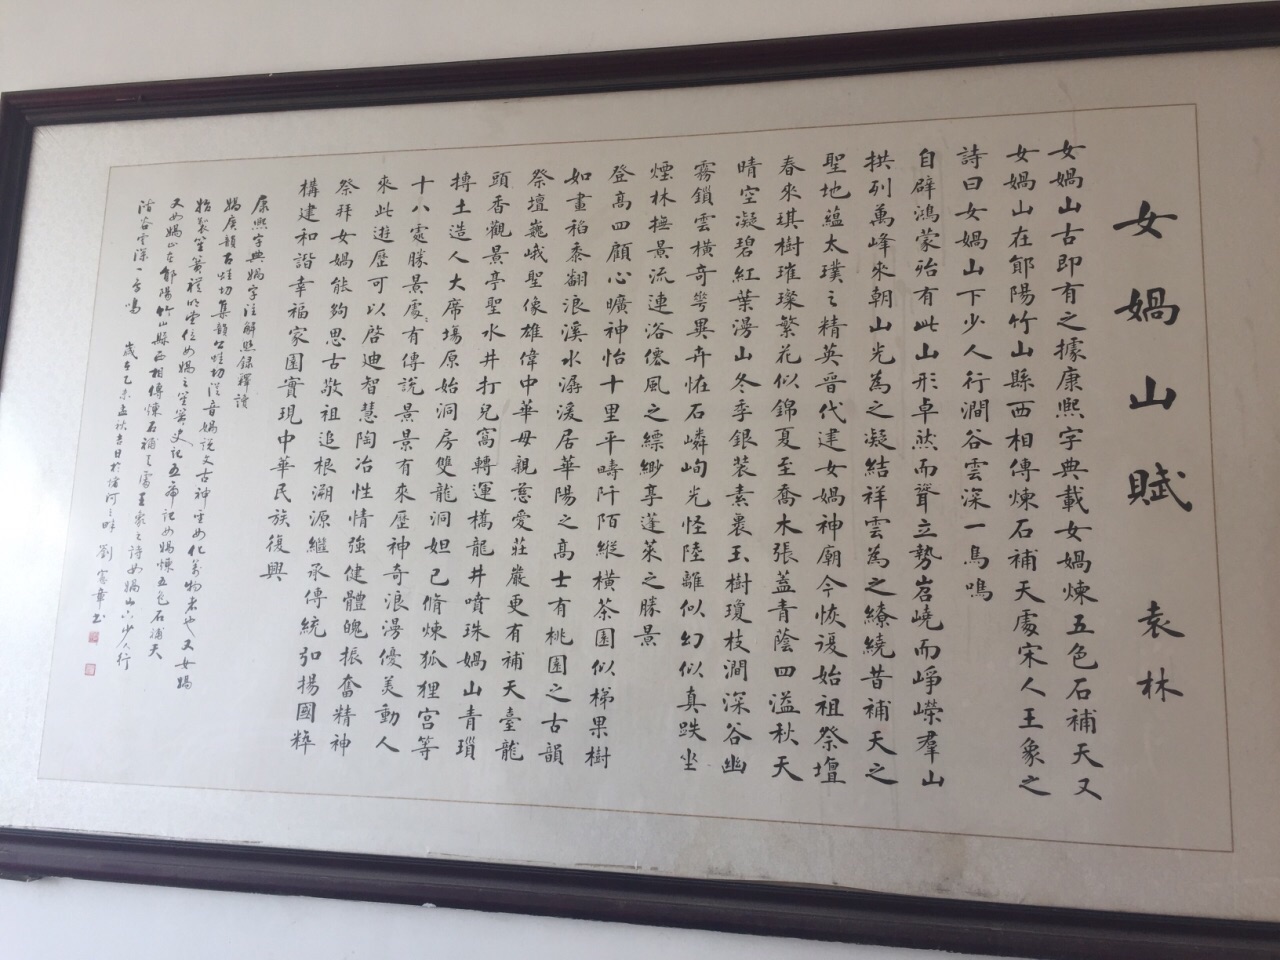 女媧山賦 袁林
女媧山古即有之據康熙字典載女媧煉五色石補天又
女媧山在鄖陽竹山縣西相傳煉石補天處宋人王象之
詩曰女媧山下少人行澗谷雲深一鳥鳴
自辟鴻蒙殆有此山形卓然而聳立勢岧嶢而崢嶸羣山
拱列萬峰來朝山光為之凝結祥雲為之繚繞昔補天之
聖地蘊太璞之精英晉代建女媧神廟今恢復始祖祭壇
春來琪樹璀璨繁花似錦夏至喬木張蓋青陰四溢秋天
晴空凝碧紅葉漫山冬季銀裝素裹玉樹瓊枝澗深谷幽
霧鎖雲橫奇卉異卉怪石嶙峋光怪陸離似幻似真趺坐
煙林撫景流連浴僊風之縹緲享蓬萊之勝景
登高四顧心曠神怡十里平疇阡陌縱橫茶園似梯果樹
如畫稻黍翻浪溪水潺湲居華陽之高士有桃園之古韻
祭壇巍峨聖像雄偉中華母親慈愛莊嚴更有補天臺龍
頭香觀景亭聖水井打兒窩轉運橋龍井噴珠媧山青瑣
摶土造人大席場原始洞房雙龍洞妲己脩煉狐狸宮等
十八處勝景處處有傳說景景有來歷神奇浪漫優美動人
來此遊歷可以啓迪智慧陶冶性情強健體魄振奮精神
祭拜女媧能夠思古敬祖追根溯源繼承傳統弘揚國粹
構建和諧幸福家園實現中華民族復興
康熙字典媧字注解照錄釋讀
媧廣韻古蛙切集韻公蛙切從音媧說文古神聖女化萬物者也又女媧
始製笙簧禮明堂位女媧之笙簧史記五帝記女媧煉五色石補天
又女媧山在鄖陽竹山縣西相傳煉石補天處王象之詩女媧山下少人行
澗谷雲深一鳥鳴 歲在乙未孟秋吉日於堵河之畔 劉憲章書